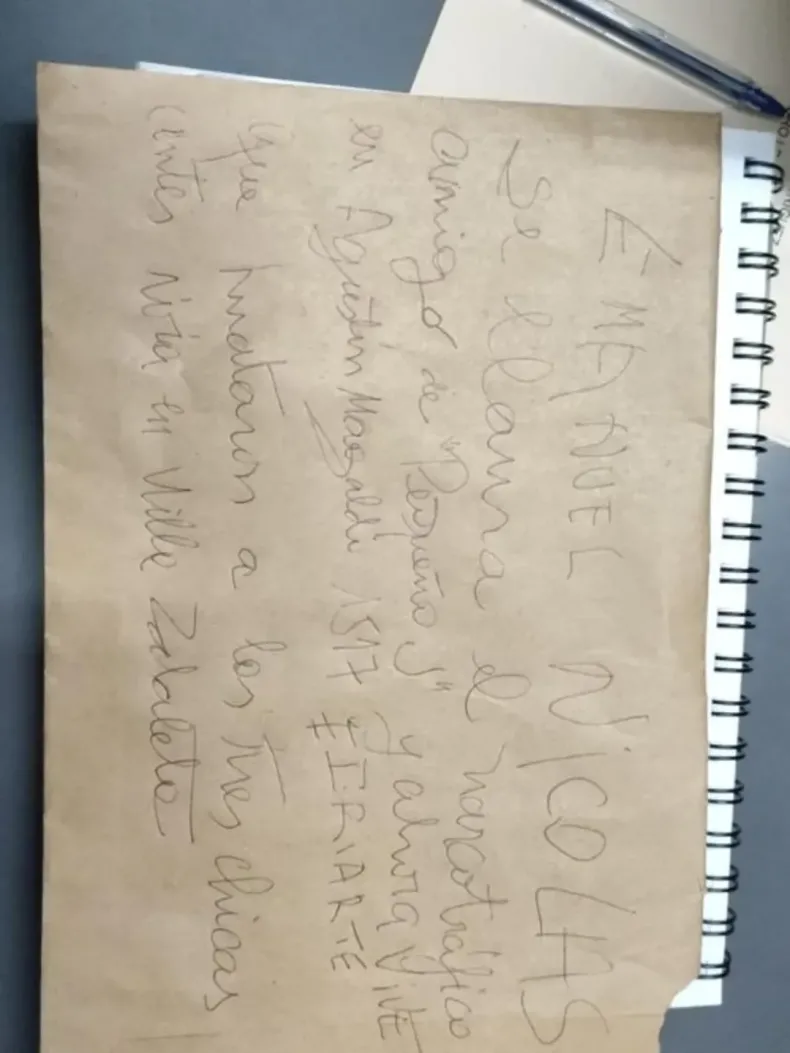 EMANUEL NICOLAS
Se llama el narcotráfico
amigo de "Pequeño J" y ahora vive
en Agustín Magaldi 1517 E IRIARTE
que mataron a las tres chicas
antes vivía en Villa Zabaleta